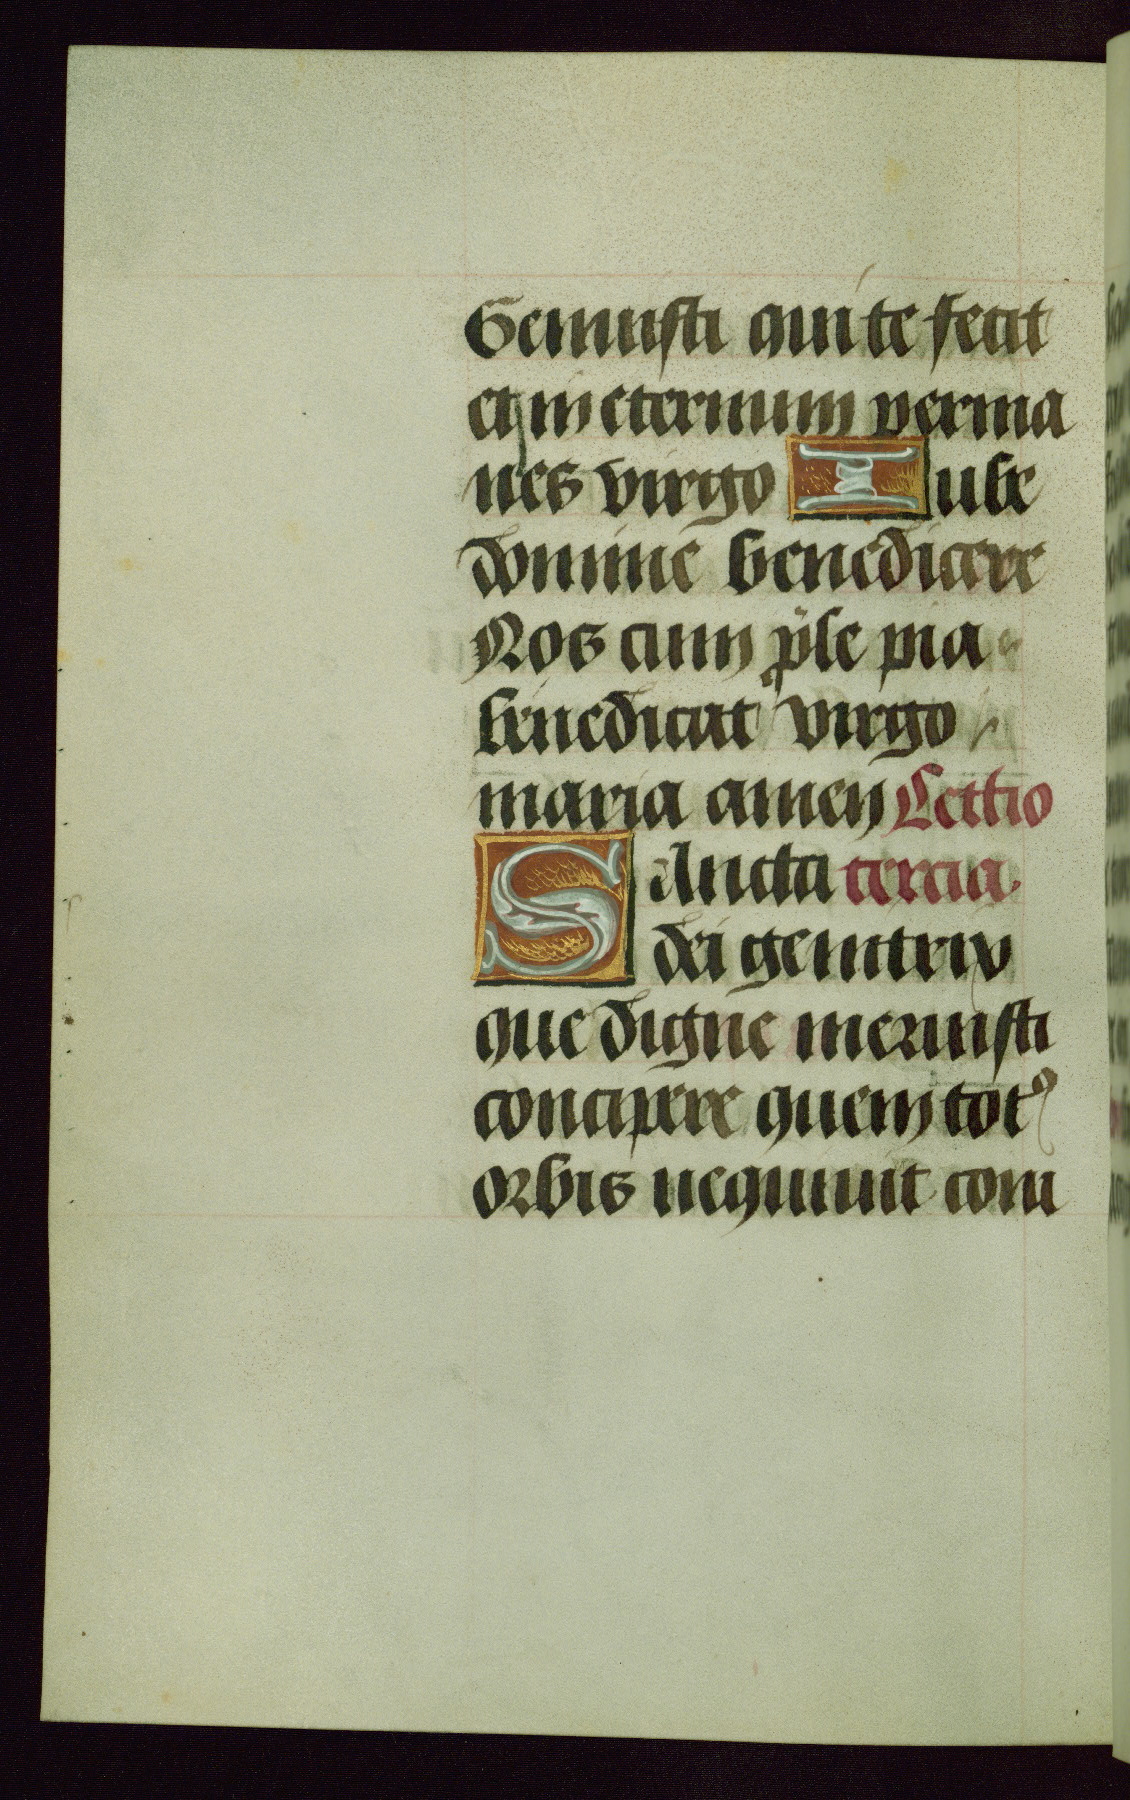 Genuisti qui te fecit
et in eternum perma
nes virgo Iube
domine benedicere
Nos cum p̄le pia
benedicat virgo
maria amen Lectio
Sancta tercia.
dei genitrix
que digne meruisti
concipere quem totꝰ
orbis nequiuit com